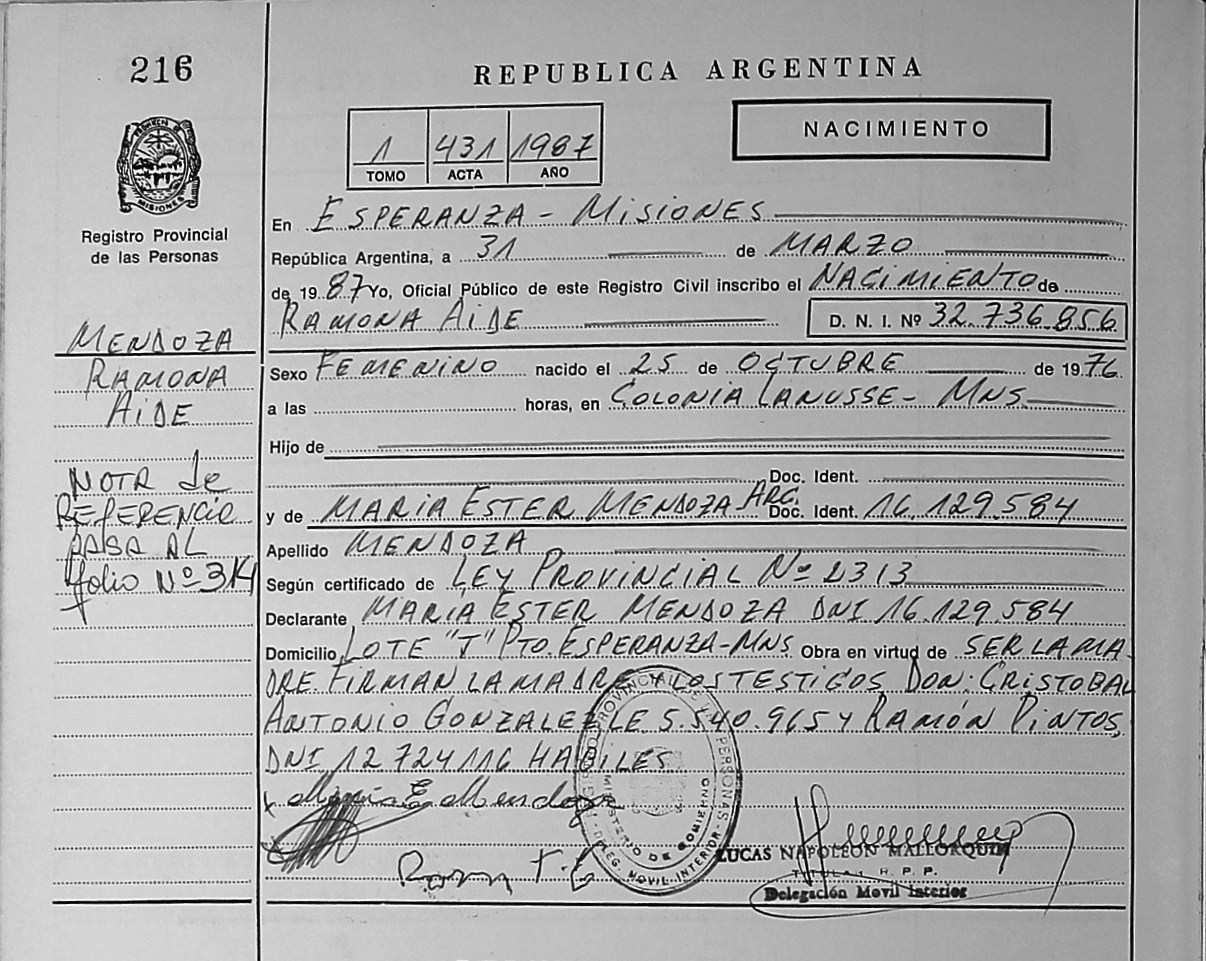 216
REPUBLICA ARGENTINA
NACIMIENTO
1 431 1987
TOMO ACTA AÑO
MISIONES
Registro Provincial
de las Personas
En ESPERANZA - MISIONES
República Argentina, a 31 de MARZO
de 1987 Yo, Oficial Público de este Registro Civil inscribo el NACIMIENTO de
RAMONA AIDE D. N. I. Nº 32.736.856
MENDOZA
RAMONA
AIDE
NOTA de
REFERENCIA
PASA AL
folio Nº 314
Sexo FEMENINO nacido el 25 de OCTUBRE de 1976
a las horas, en COLONIA LANUSSE - MNS
Hijo de
Doc. Ident.
y de MARIA ESTER MENDOZA ARG. Doc. Ident. 16.129.584
Apellido MENDOZA
Según certificado de LEY PROVINCIAL Nº 2313
Declarante MARIA ESTER MENDOZA DNI 16.129.584
Domicilio LOTE "J" PTO. ESPERANZA-MNS Obra en virtud de SER LA MA
DRE. FIRMAN LA MADRE Y LOS TESTIGOS DON: CRISTOBAL
ANTONIO GONZALEZ LE 5.540.965 Y RAMÓN PINTOS,
DNI 12 724 116 HABILES
x Maria E Mendoza
PROVINCIAL DE LAS PERSONAS
MINISTERIO DE GOBIERNO
DELEG. MOVIL INTERIOR
LUCAS NAPOLEON MALLORQUIN
TITULAR R. P. P.
Delegación Movil Interior